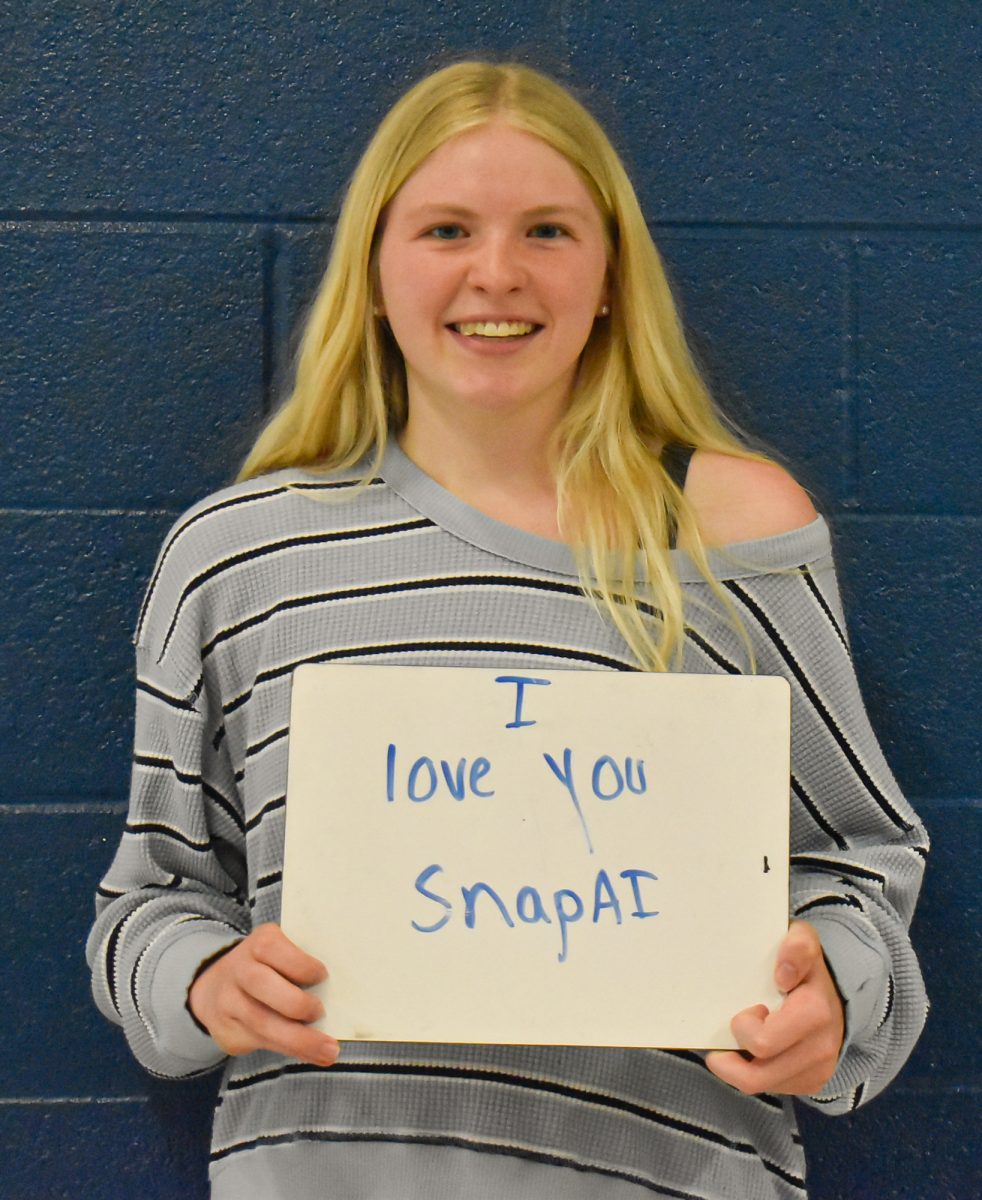 I
love you
SnapAI